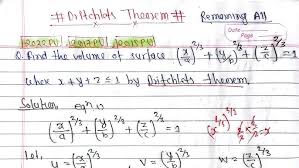 # Dritchlots Theorem # Remaining All
Date
Page
2020PU 2017PU 2015PU
Q. Find the volume of surface (x/a)^2/3 + (y/b)^2/3 + (z/c)^2/3 = 1
Where x + y + z ≤ 1 by Dritchlots theorem
Solution eqⁿ is
(x/a)^2/3 + (y/b)^2/3 + (z/c)^2/3 = 1
Let,